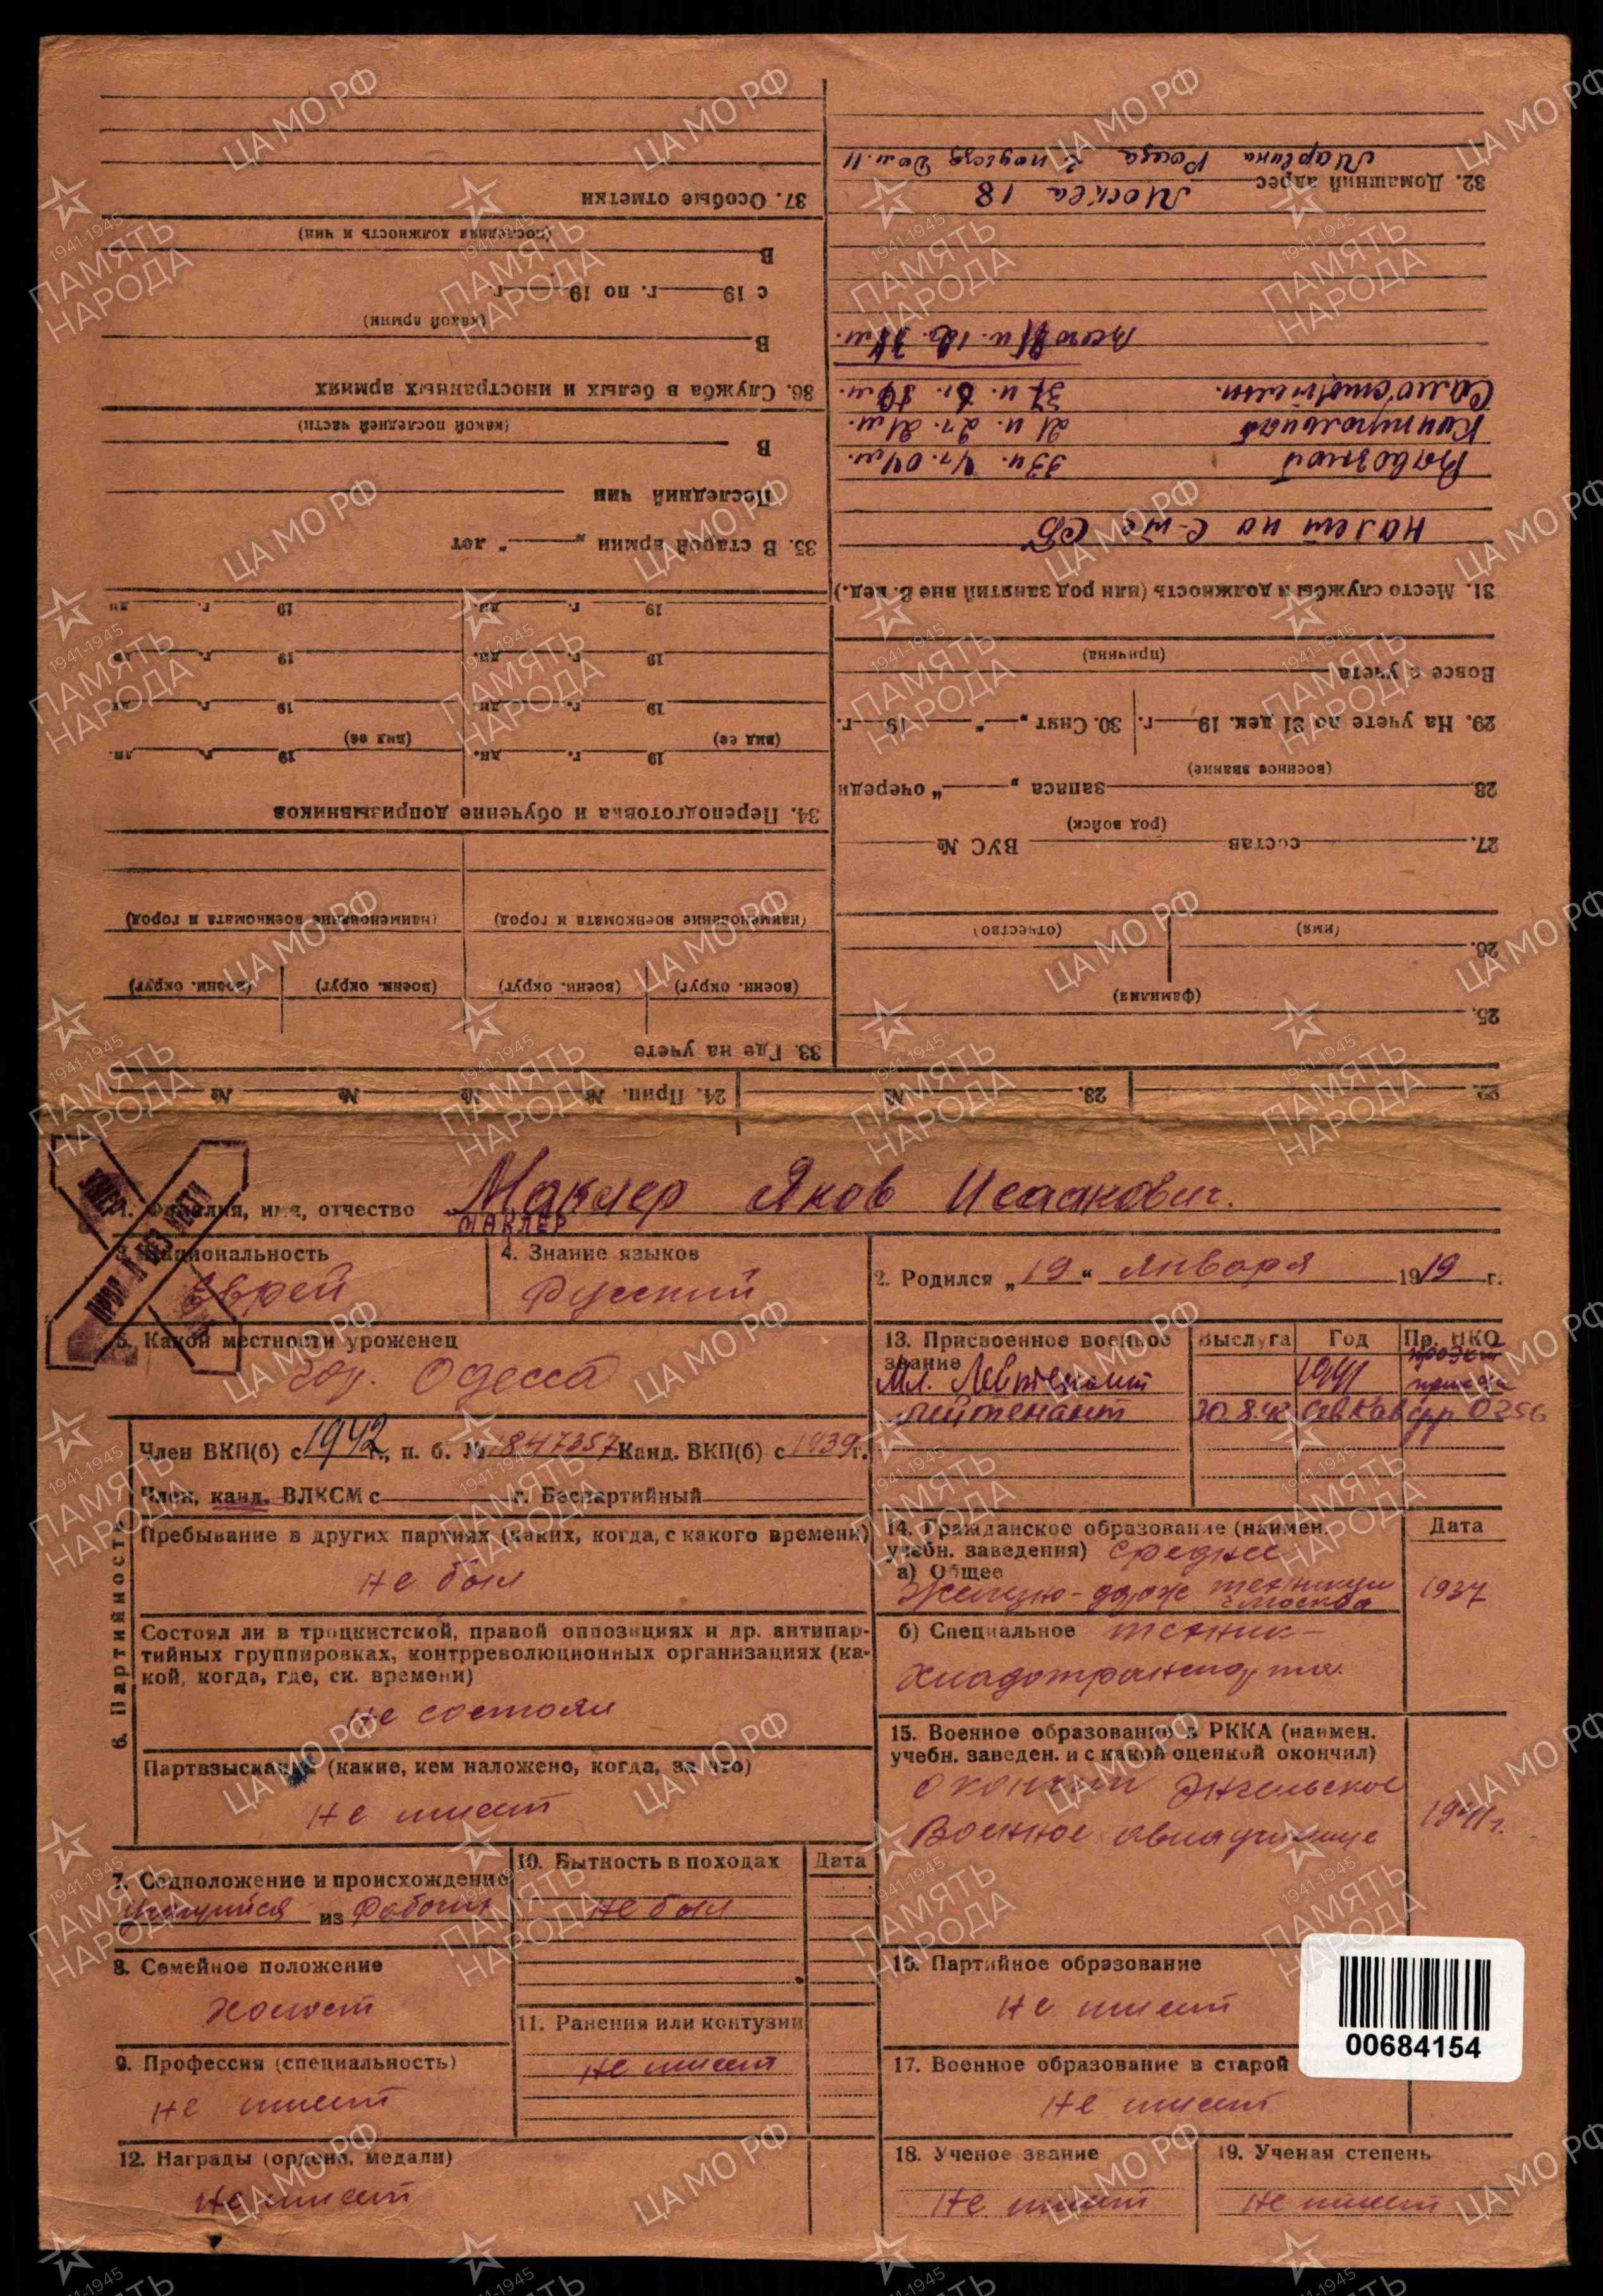 1. Фамилия, имя, отчество Маклер Яков Исаакович.
МАКЛЕР
3. Национальность
Еврей
4. Знание языков
Русский
2. Родился „19“ января 1919 г.
5. Какой местности уроженец
гор. Одесса
13. Присвоенное военное звание
Выслуга
Год
Пр. НКО
Мл. Лейтенант 1941 проэкт приказа
лейтенант 30.8.42 СевКав фр 0256
6. Партийность
Член ВКП(б) с 1942 г., п. б. № 4847357 Канд. ВКП(б) с 1939 г.
Член, канд. ВЛКСМ с г. Беспартийный
Пребывание в других партиях (каких, когда, с какого времени)
не был
Состоял ли в троцкистской, правой оппозициях и др. антипар-
тийных группировках, контрреволюционных организациях (ка-
кой, когда, где, ск. времени)
не состоял
Партвзыскания (какие, кем наложено, когда, за что)
не имеет
14. Гражданское образование (наимен.
учебн. заведения) среднее
Дата
а) Общее
Железно-дорож техникум
г. Москва
1937
б) Специальное техник-
хладотранспорта.
15. Военное образование в РККА (наимен.
учебн. заведен. и с какой оценкой окончил)
окончил Энгельское
Военное авиаучилище
1941 г.
7. Соцположение и происхождение
Учащийся из Рабочих
10. Бытность в походах
Дата
не был
8. Семейное положение
холост
11. Ранения или контузии
не имеет
9. Профессия (специальность)
не имеет
12. Награды (ордена, медали)
не имеет
16. Партийное образование
не имеет
17. Военное образование в старой
не имеет
18. Ученое звание
не имеет
19. Ученая степень
не имеет
00684154
22.
23. №
24. Прип. № № № №
25.
(фамилия)
26.
(имя)
(отчество)
27. состав ВУС №
(род войск)
28. запаса „ “ очереди
(военное звание)
29. На учете по 31 дек. 19 г. 30. Снят „ “ 19 г.
Вовсе с учета
(причина)
31. Место службы и должность (или род занятий вне в. вед.)
налет на с-те СБ
Вывозной 33 п. 4 ч. 04 м.
Контрольная 21 п. 2 ч. 21 м.
Самостоятельн.
32. Домашний адрес Москва 18
Марьина Роща 2 подъезд Дом. 11
33. Где на учете
(воен. округ)
(воен. округ)
(воен. округ)
(воен. округ)
(наименование военкомата и город)
(наименование военкомата и город)
34. Переподготовка и обучение допризывников
19 г. дн. 19 г. дн.
(вид ее)
(вид ее)
19 г. дн. 19 г. дн.
19 г. дн. 19 г. дн.
19 г. дн. 19 г. дн.
35. В старой армии „ “ лет
Последний чин
В
(какой последней части)
36. Служба в белых и иностранных армиях
В
(какой армии)
с 19 г. по 19 г.
В
(последняя должность и чин)
37. Особые отметки
ЦА МО РФ
1941-1945
ПАМЯТЬ
НАРОДА